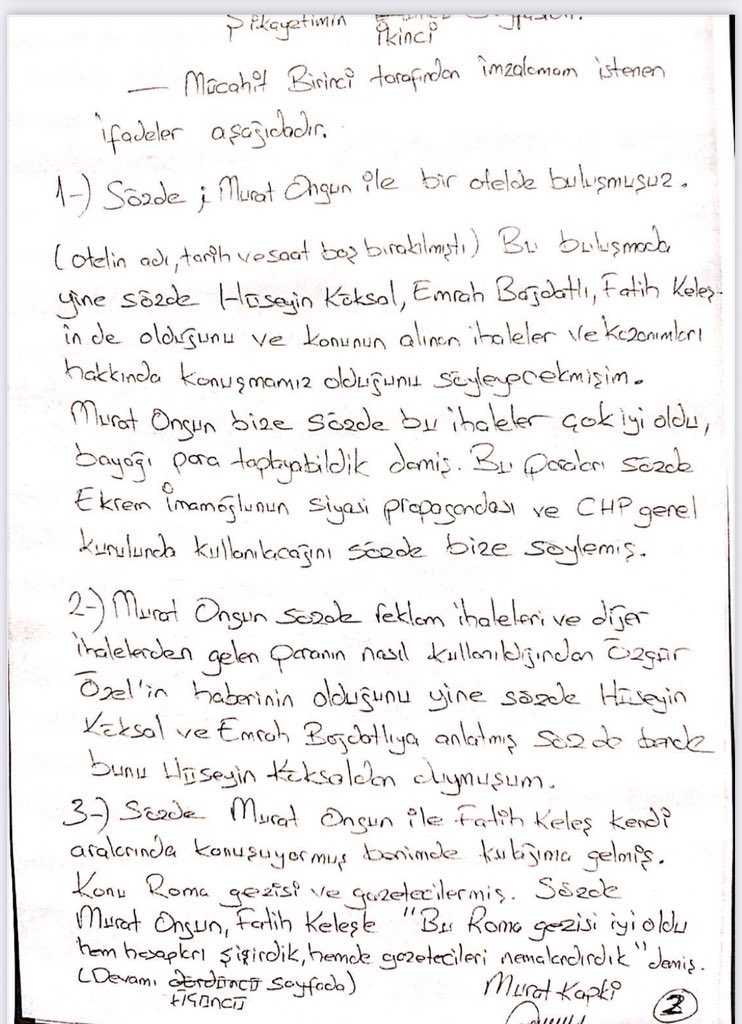 Şikayetimin İkinci
— Mücahit Birinci tarafından imzalamam istenen
ifadeler aşağıdadır.
1-) Sözde ; Murat Ongun ile bir otelde buluşmuşuz.
(otelin adı, tarih ve saat boş bırakılmıştı) Bu buluşmada
yine sözde Hüseyin Köksal, Emrah Bağdatlı, Fatih Keleş-
in de olduğunu ve konunun alınan ihaleler ve kazanımları
hakkında konuşmamız olduğunu söyleyecekmişim.
Murat Ongun bize sözde bu ihaleler çok iyi oldu,
bayağı para toplayabildik demiş. Bu paraları sözde
Ekrem İmamoğlunun siyasi propagandası ve CHP genel
kurulunda kullanılacağını sözde bize söylemiş.
2-) Murat Ongun sözde reklam ihaleleri ve diğer
ihalelerden gelen paranın nasıl kullanıldığından Özgür
Özel'in haberinin olduğunu yine sözde Hüseyin
Köksal ve Emrah Bağdatlıya anlatmış sözde bende
bunu Hüseyin Köksaldan duymuşum.
3-) Sözde Murat Ongun ile Fatih Keleş kendi
aralarında konuşuyormuş benimde kulağıma gelmiş.
Konu Roma gezisi ve gazetecilermiş. Sözde
Murat Ongun, Fatih Keleşe "Bu Roma gezisi iyi oldu
hem hesapları şişirdik, hemde gazetecileri nemalandırdık" demiş.
(Devamı dördüncü sayfada) Murat Kapki
üçüncü 2